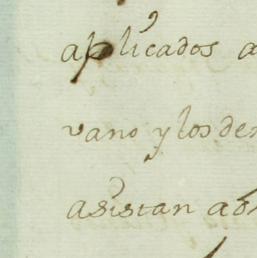 aplicados a
vano y los de
asistan a